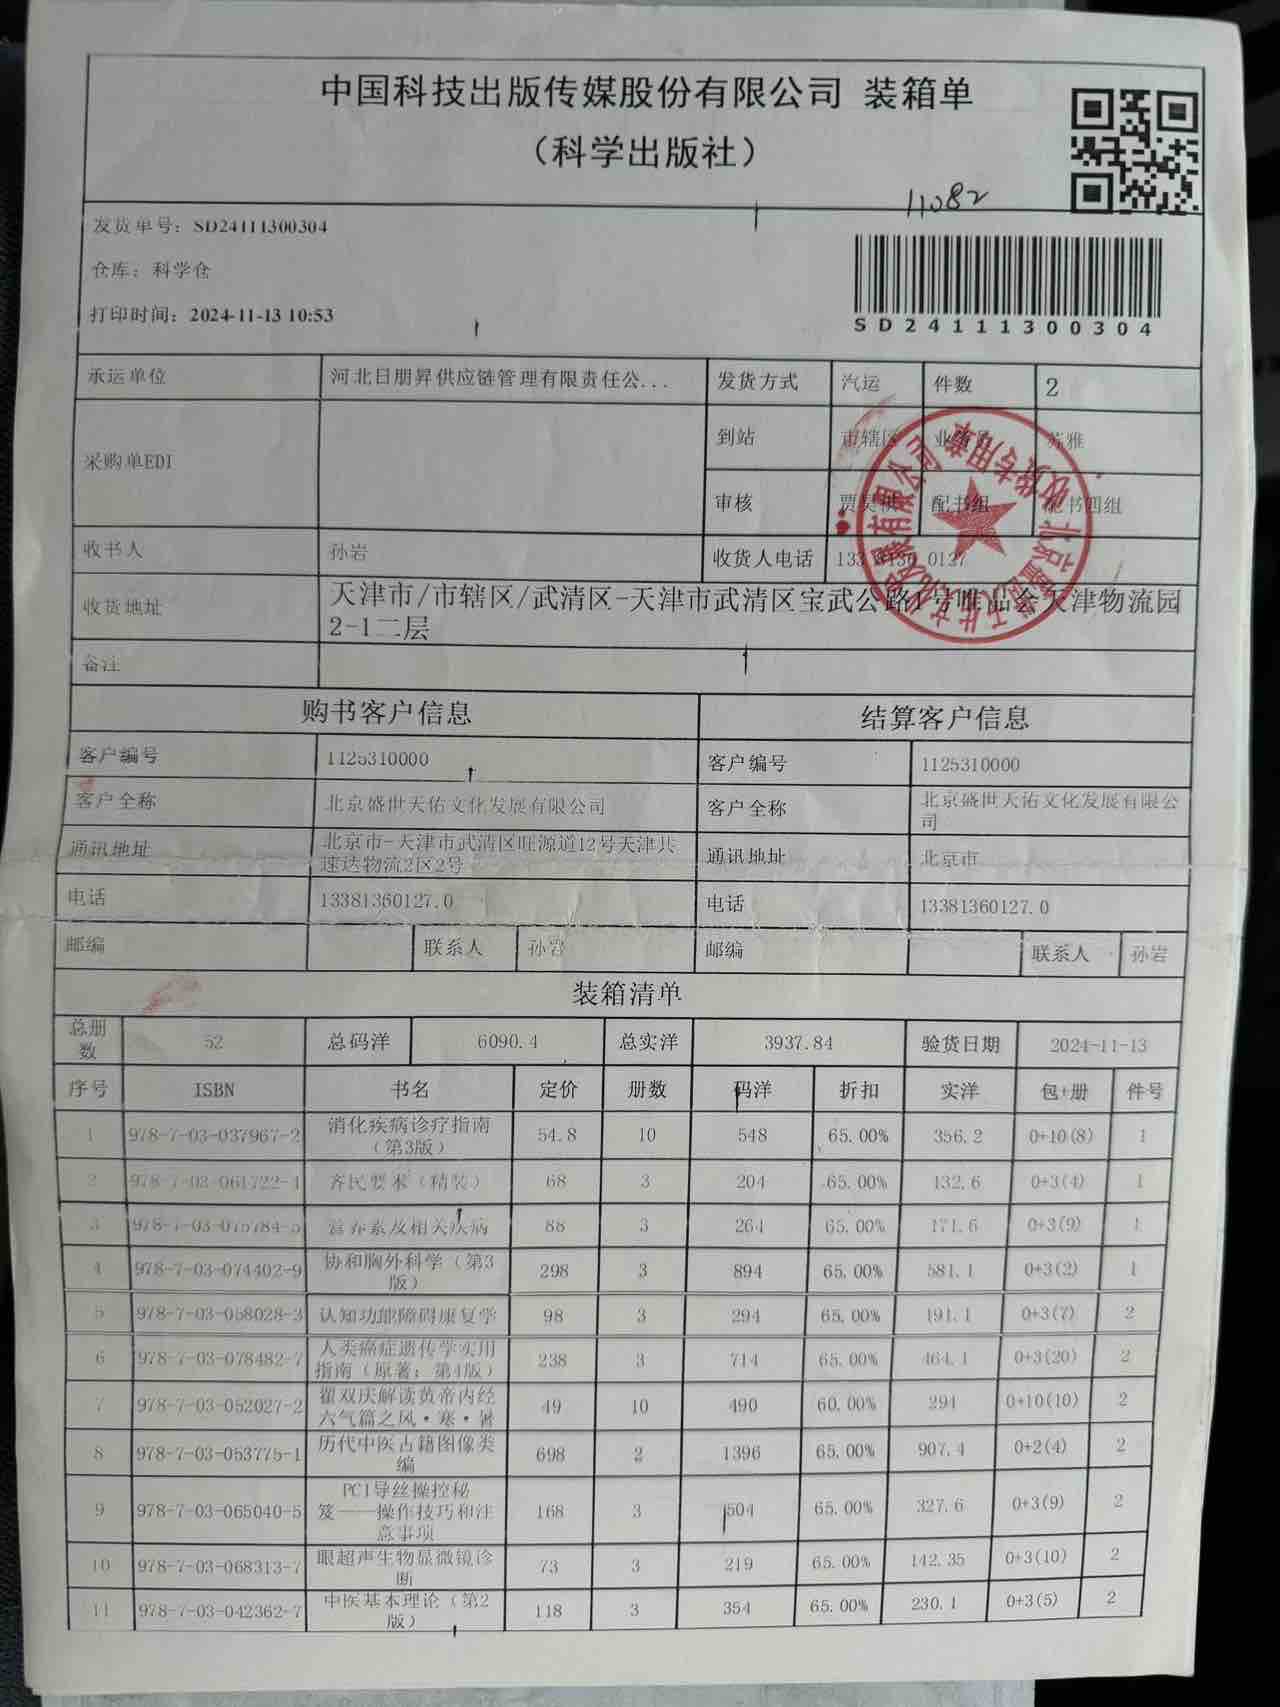 中国科技出版传媒股份有限公司 装箱单
（科学出版社）
11082
发货单号：SD24111300304
仓库：科学仓
打印时间：2024-11-13 10:53
SD24111300304
承运单位 河北日朋昇供应链管理有限责任公... 发货方式 汽运 件数 2
采购单EDI 到站 市辖区 业务员 苏雅
审核 配书组 配书四组
收书人 孙岩 收货人电话 0127
收货地址 天津市/市辖区/武清区-天津市武清区宝武公路1号唯品会天津物流园
2-1二层
备注
购书客户信息 结算客户信息
客户编号 1125310000 客户编号 1125310000
客户全称 北京盛世天佑文化发展有限公司 客户全称 北京盛世天佑文化发展有限公
司
通讯地址 北京市-天津市武清区旺源道12号天津共
速达物流2区2号 通讯地址 北京市
电话 13381360127.0 电话 13381360127.0
邮编 联系人 孙岩 邮编 联系人 孙岩
装箱清单
总册
数 52 总码洋 6090.4 总实洋 3937.84 验货日期 2024-11-13
序号 ISBN 书名 定价 册数 码洋 折扣 实洋 包+册 件号
1 978-7-03-037967-2 消化疾病诊疗指南
（第3版） 54.8 10 548 65.00% 356.2 0+10(8) 1
2 978-7-03-061722-4 齐民要术（精装） 68 3 204 65.00% 132.6 0+3(4) 1
3 978-7-03-075784-5 营养素及相关疾病 88 3 264 65.00% 171.6 0+3(9) 1
4 978-7-03-074402-9 协和胸外科学（第3
版） 298 3 894 65.00% 581.1 0+3(2) 1
5 978-7-03-058028-3 认知功能障碍康复学 98 3 294 65.00% 191.1 0+3(7) 2
6 978-7-03-078482-7 人类癌症遗传学实用
指南（原著：第4版） 238 3 714 65.00% 464.1 0+3(20) 2
7 978-7-03-052027-2 翟双庆解读黄帝内经
六气篇之风·寒·暑 49 10 490 60.00% 294 0+10(10) 2
8 978-7-03-053775-1 历代中医古籍图像类
编 698 2 1396 65.00% 907.4 0+2(4) 2
9 978-7-03-065040-5 PCI导丝操控秘
笈——操作技巧和注
意事项 168 3 504 65.00% 327.6 0+3(9) 2
10 978-7-03-068313-7 眼超声生物显微镜诊
断 73 3 219 65.00% 142.35 0+3(10) 2
11 978-7-03-042362-7 中医基本理论（第2
版） 118 3 354 65.00% 230.1 0+3(5) 2
北京盛世天佑文化发展有限公司
收货专用章